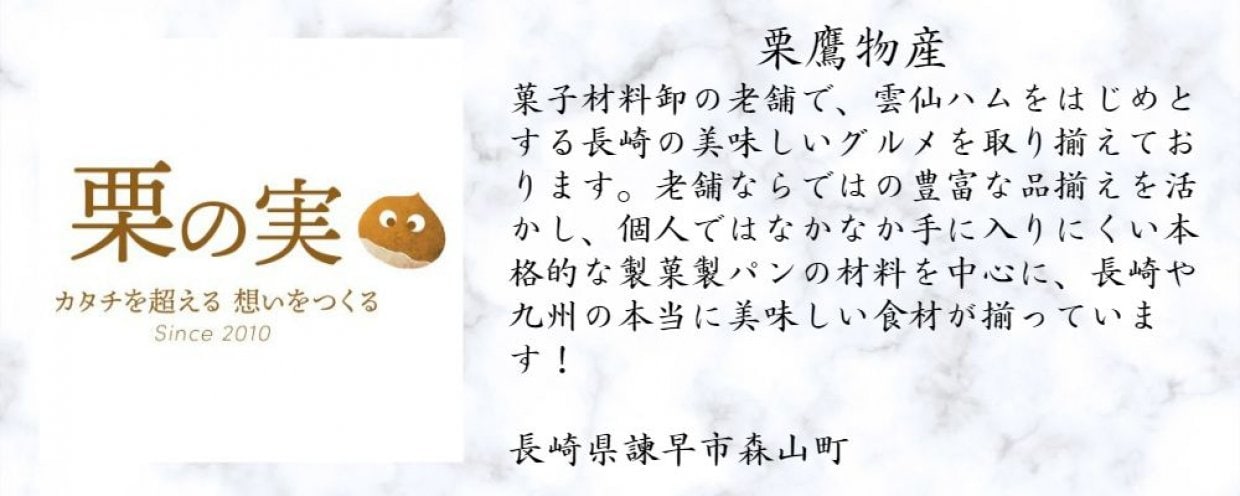 栗の実
カタチを超える 想いをつくる
Since 2010
栗鷹物産
菓子材料卸の老舗で、雲仙ハムをはじめと
する長崎の美味しいグルメを取り揃えてお
ります。老舗ならではの豊富な品揃えを活
かし、個人ではなかなか手に入りにくい本
格的な製菓製パンの材料を中心に、長崎や
九州の本当に美味しい食材が揃っていま
す！
長崎県諫早市森山町